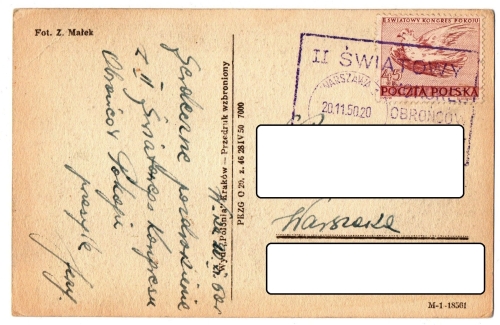 Fot. Z. Małek
Serdeczne pozdrowienie
z II Światowego Kongresu
Obrońców Pokoju
przesyła
Wyd. „Polonia” Kraków — Przedruk wzbroniony
PEZG O 20, z. 46 28 IV 50 7000
II ŚWIATOWY KONGRES POKOJU
45
POCZTA POLSKA
II ŚWIATOWY
WARSZAWA
20.11.50.20
OBROŃCÓW
Warszawa
M-1-18561